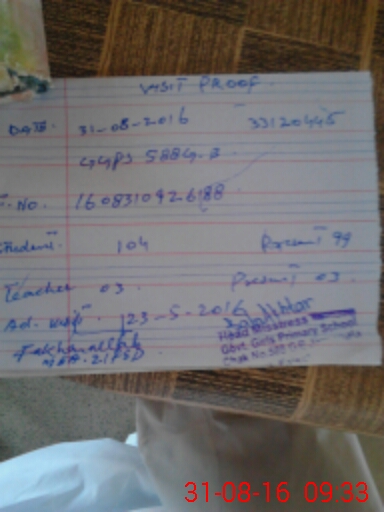 VISIT PROOF.
DATE. 31-08-2016 33120445
GGPS 588G.B
T.No. 1608310926188
Student. 104 Present 99
Teacher 03. Present 03.
Ad. visit. 23-5-2016
Head Mistress
Govt. Girls Primary School
Chak No.
31-08-16 09:33